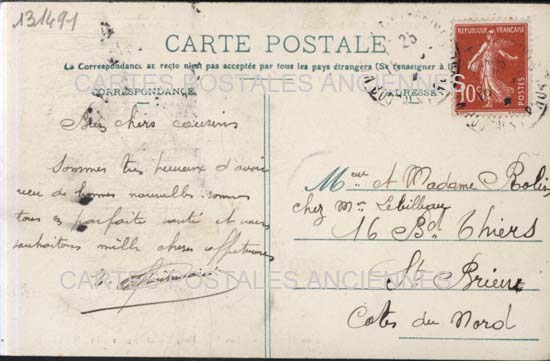 131491
CARTE POSTALE
La Correspondance au recto n'est pas acceptée par tous les pays étrangers (Se renseigner à la
CORRESPONDANCE
ADRESSE
REPUBLIQUE FRANÇAISE
10c
POSTES
25
chers cousins
Sommes très heureux d'avoir
reçu de bonnes nouvelles sommes
tous en parfaite santé et vous
souhaitons mille choses affectueuses
Mr et Madame Rolin
chez Mr Lebilleau
16 Bd Thiers
St Brieuc
Cotes du Nord
CARTES POSTALES ANCIENNES
CARTES POSTALES ANCIENNES